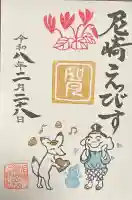 尼崎えびす
令和八年二月二十八日